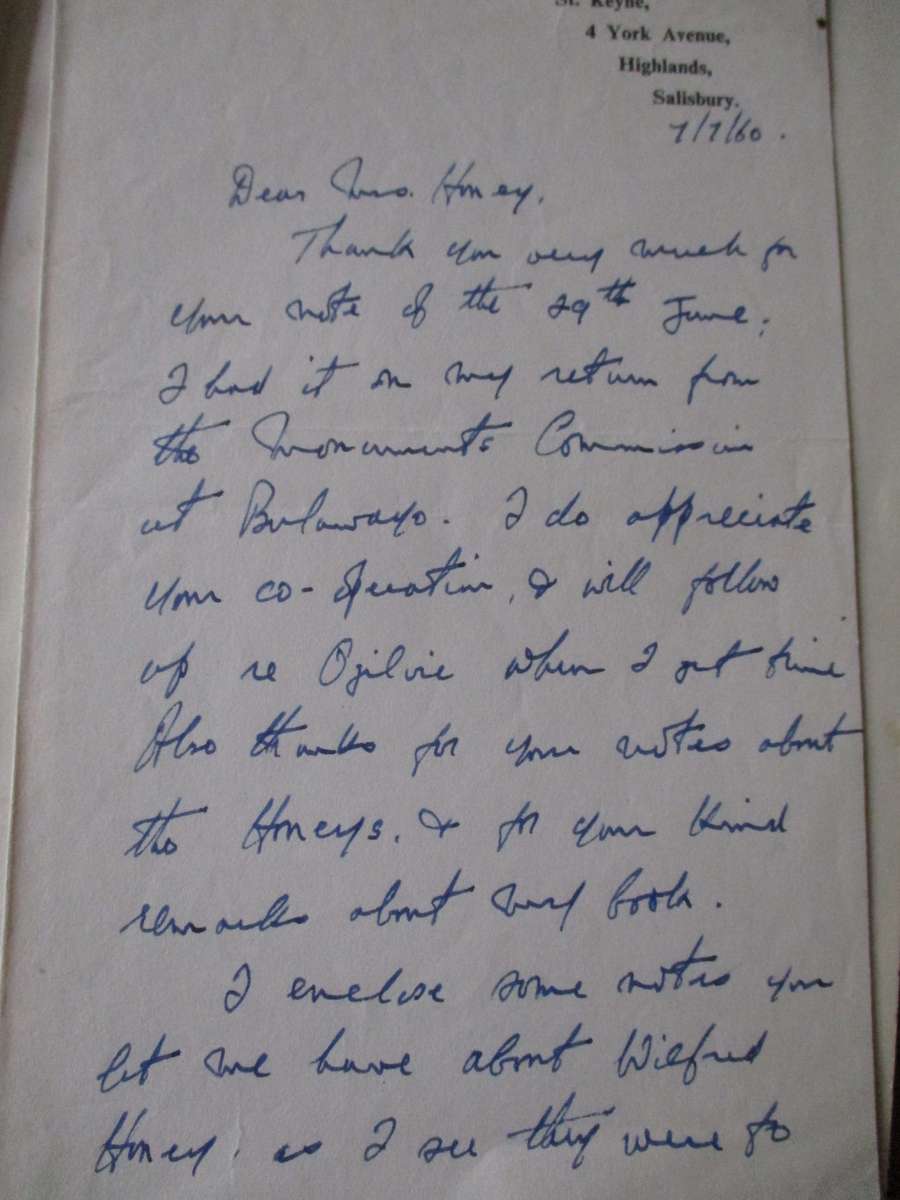 St. Keyne,
4 York Avenue,
Highlands,
Salisbury.
7/7/60.
Dear Mrs. Honey,
Thank you very much for
your note of the 29th June.
I had it on my return from
the Monuments Commission
at Bulawayo. I do appreciate
your co-operation, & will follow
up re Ogilvie when I get time
Also thanks for your notes about
the Honeys, & for your kind
remarks about my book.
I enclose some notes you
let me have about Wilfred
Honey as I see they were to